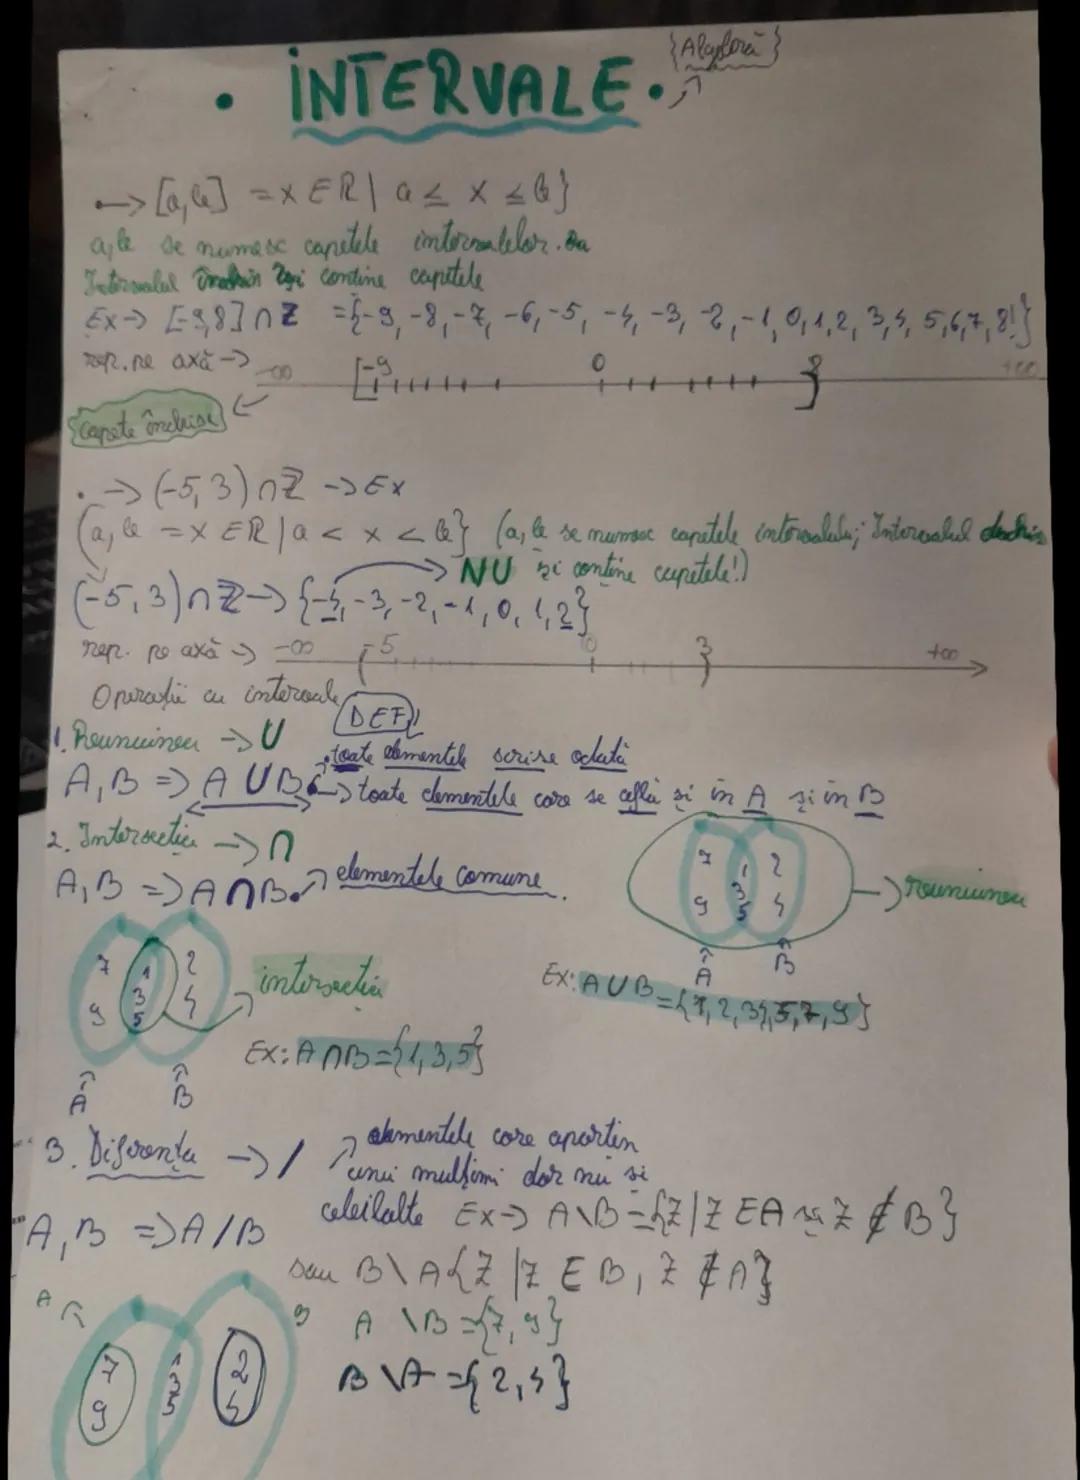 {Algebră}
• INTERVALE •
→ [a,b] = x ∈ R | a ≤ x ≤ b}
a,b se numesc capetele intervalelor.
Intervalul închis își contine capetele
Ex → [-9,8] ∩ Z = {-9, -8, -7, -6, -5, -4, -3, -2, -1, 0, 1, 2, 3, 4, 5, 6, 7, 8!}
rep. pe axă → -∞ [-9 0 8] +∞
Capete închise
• → (-5, 3) ∩ Z → Ex
(a, b = x ∈ R | a < x < b} (a, b se numesc capetele intervalului; Intervalul deschis
NU își contine capetele!)
(-5, 3) ∩ Z → {-4, -3, -2, -1, 0, 1, 2}
rep. pe axă → -∞ (-5 0 3) +∞
Operații cu intervale
DEF!
1. Reuniunea → U
• toate elementele scrise odată
A, B => A U B • → toate elementele care se află și in A și in B
2. Intersectia → ∩
A, B => A ∩ B. → elementele comune.
7 1 2
3
9 5 4
→ reuniunea
A B
Ex: A U B = {1, 2, 3, 4, 5, 7, 9}
7 1 2
3
9 5 4
intersectia
Ex: A ∩ B = {1, 3, 5}
A B
3. Diferenta → /
elementele care apartin
unei mulțimi dar nu si
celeilalte Ex → A \ B = {Z | Z ∈ A și Z ∉ B}
A, B => A / B
sau B \ A {Z | Z ∈ B, Z ∉ A}
A
A \ B = {7, 9}
B \ A = {2, 4}
7 1 2
3
9 5 4